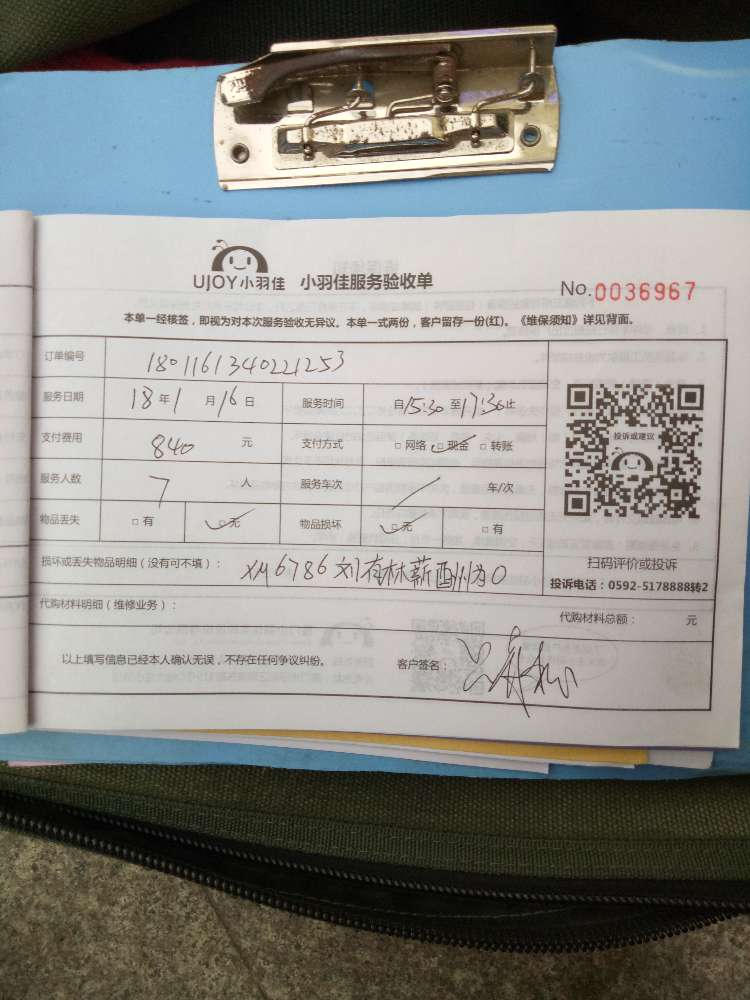 UJOY小羽佳 小羽佳服务验收单
No.0036967
本单一经核签，即视为对本次服务验收无异议。本单一式两份，客户留存一份(红)。《维保须知》详见背面。
订单编号 1801161340221253
服务日期 18年1月16日 服务时间 自15:30至17:30止
支付费用 840 元 支付方式 □网络 □现金 □转账
服务人数 7 人 服务车次 / 车/次
物品丢失 □有 □无 物品损坏 □无 □有
投诉或建议
扫码评价或投诉
投诉电话：0592-5178888转2
损坏或丢失物品明细（没有可不填）： XM6786刘有林薪酬为0
代购材料明细（维修业务）： 代购材料总额： 元
以上填写信息已经本人确认无误，不存在任何争议纠纷。 客户签名：